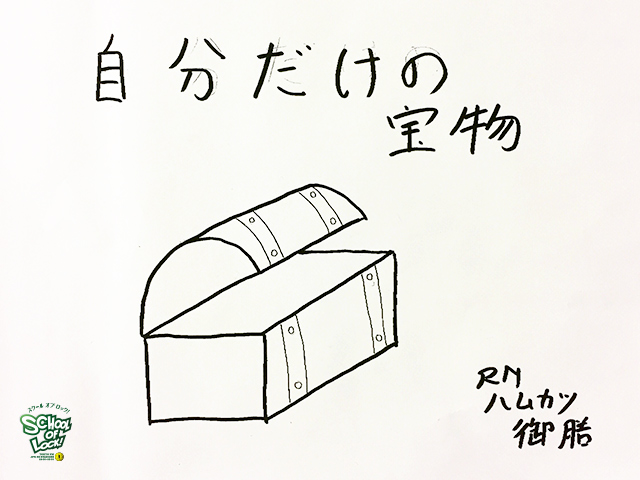 自分だけの
宝物
RN
ハムカツ
御膳
スクール オブ ロック!
SCHOOL
OF
LOCK!